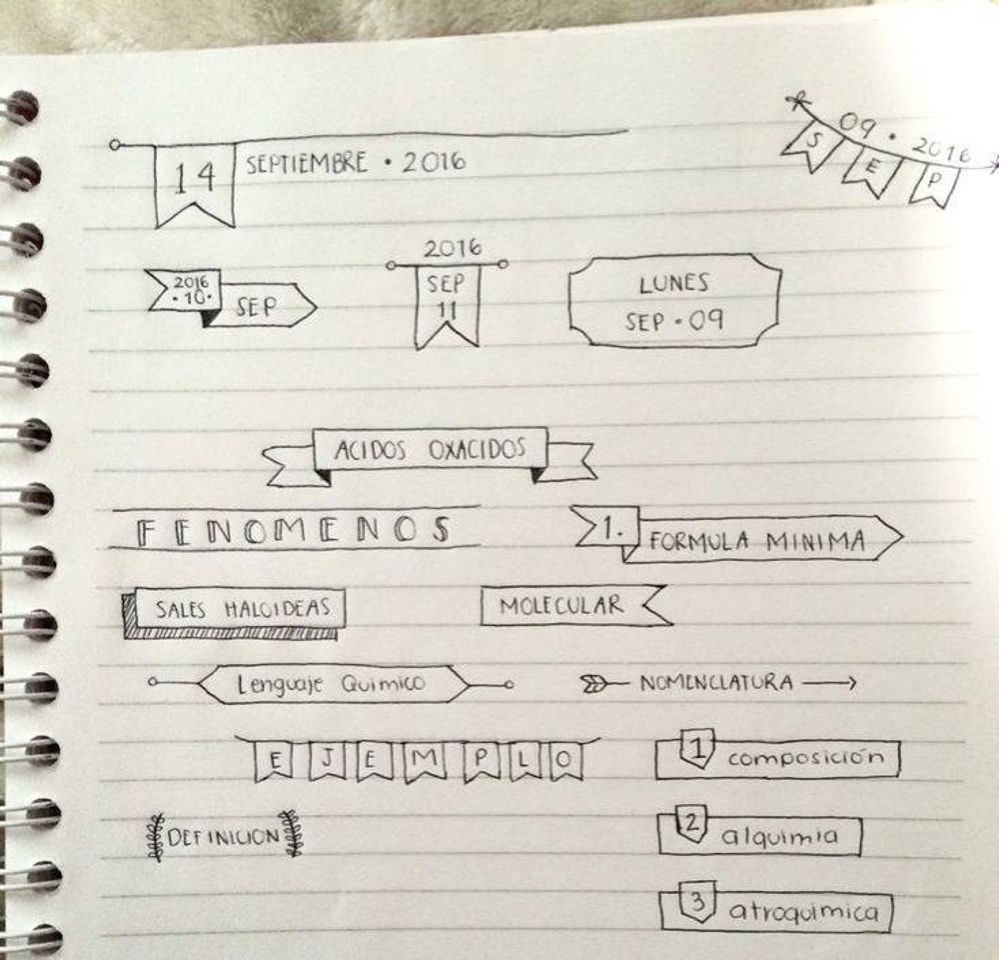 14 SEPTIEMBRE • 2016
09 • 2016
SEP
2016
• 10 •
SEP
2016
SEP
11
LUNES
SEP • 09
ACIDOS OXACIDOS
FENOMENOS
1. FORMULA MINIMA
SALES HALOIDEAS
MOLECULAR
Lenguaje Quimico
NOMENCLATURA
EJEMPLO
1 composición
DEFINICION
2 alquimia
3 atroquimica